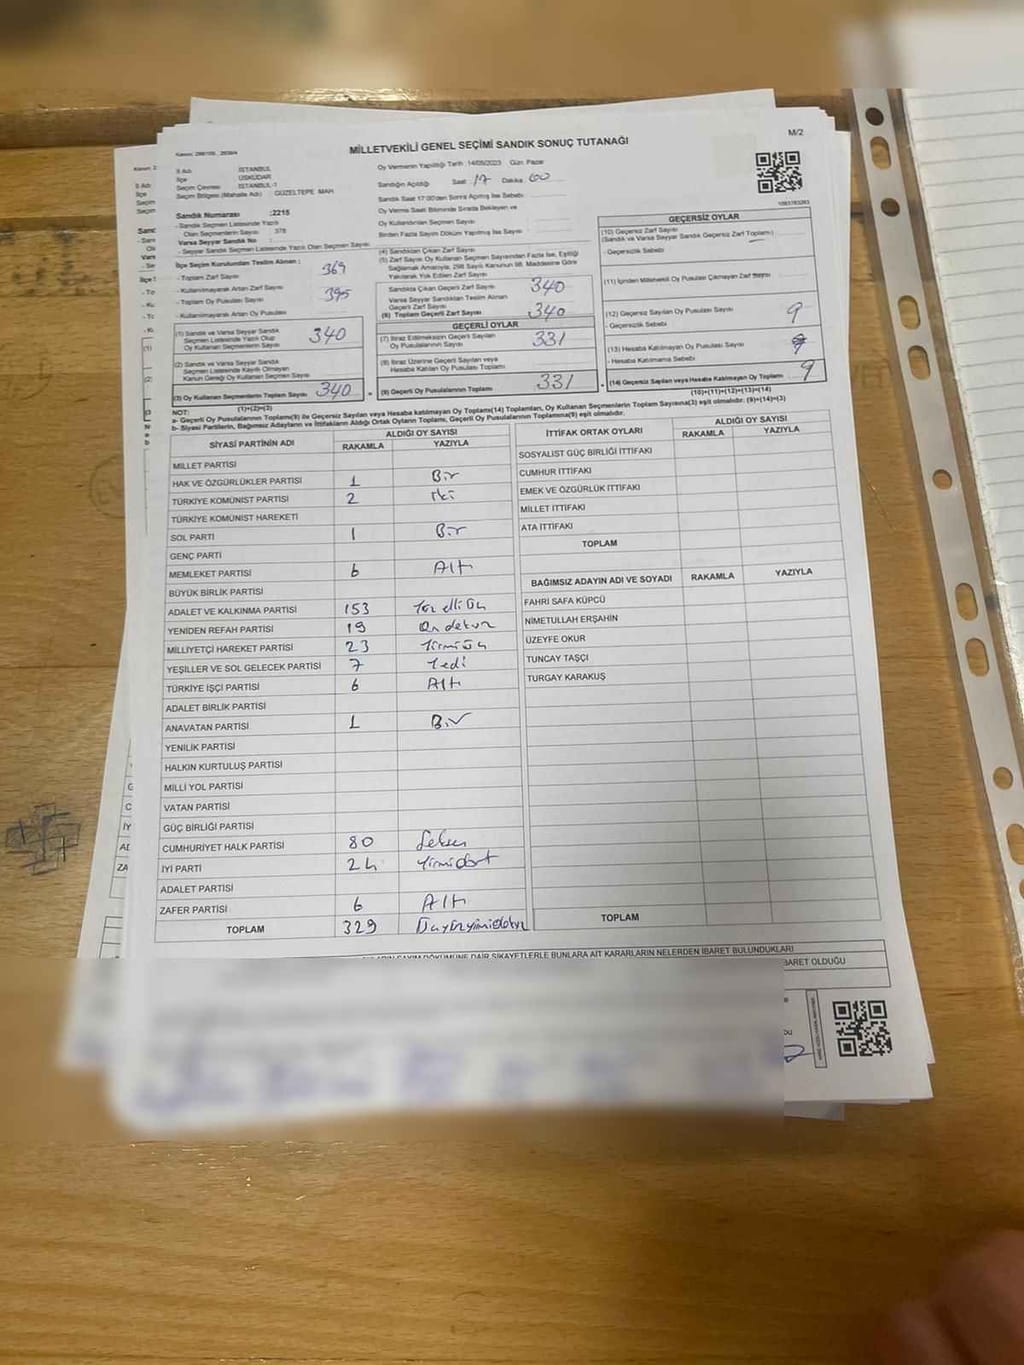 M/2
MİLLETVEKİLİ GENEL SEÇİMİ SANDIK SONUÇ TUTANAĞI
İl Adı : İSTANBUL
İlçe : ÜSKÜDAR
Seçim Çevresi : İSTANBUL-1
Seçim Bölgesi (Mahalle Adı) : GÜZELTEPE MAH.
Oy Vermenin Yapıldığı Tarih :14/05/2023 Gün: Pazar
Sandığın Açıldığı Saat : 17 Dakika 00
Sandık Saat 17:00'den Sonra Açılmış İse Sebebi
Oy Verme Saati Bitiminde Sırada Bekleyen ve
Oy Kullandırılan Seçmen Sayısı
Birden Fazla Sayım Döküm Yapılmış İse Sayısı :
Sandık Numarası :2215
- Sandık Seçmen Listesinde Yazılı
Olan Seçmenlerin Sayısı : 378
Varsa Seyyar Sandık No :
- Seyyar Sandık Seçmen Listesinde Yazılı Olan Seçmen Sayısı
İlçe Seçim Kurulundan Teslim Alınan :
- Toplam Zarf Sayısı 369
- Kullanılmayarak Artan Zarf Sayısı
- Toplam Oy Pusulası Sayısı 395
- Kullanılmayarak Artan Oy Pusulası
(1) Sandık ve Varsa Seyyar Sandık
Seçmen Listesinde Yazılı Olup
Oy Kullanan Seçmenlerin Sayısı 340
(2) Sandık ve Varsa Seyyar Sandık
Seçmen Listesinde Kayıtlı Olmayan
Kanun Gereği Oy Kullanan Seçmen Sayısı
(3) Oy Kullanan Seçmenlerin Toplam Sayısı 340
(1)+(2)=(3)
(4) Sandıktan Çıkan Zarf Sayısı
(5) Zarf Sayısı Oy Kullanan Seçmen Sayısından Fazla İse, Eşitliği
Sağlamak Amacıyla, 298 Sayılı Kanunun 98. Maddesine Göre
Yakılarak Yok Edilen Zarf Sayısı
Sandıkta Çıkan Geçerli Zarf Sayısı 340
Varsa Seyyar Sandıktan Teslim Alınan
Geçerli Zarf Sayısı
(6) Toplam Geçerli Zarf Sayısı 340
GEÇERLİ OYLAR
(7) İtiraz Edilmeksizin Geçerli Sayılan
Oy Pusulalarının Sayısı 331
(8) İtiraz Üzerine Geçerli Sayılan veya
Hesaba Katılan Oy Pusulası Toplamı
(9) Geçerli Oy Pusulalarının Toplamı 331
GEÇERSİZ OYLAR
(10) Geçersiz Zarf Sayısı
(Sandık ve Varsa Seyyar Sandık Geçersiz Zarf Toplamı)
- Geçersizlik Sebebi
(11) İçinden Milletvekili Oy Pusulası Çıkmayan Zarf Sayısı
(12) Geçersiz Sayılan Oy Pusulası Sayısı 9
- Geçersizlik Sebebi
(13) Hesaba Katılmayan Oy Pusulası Sayısı
- Hesaba Katılmama Sebebi
(14) Geçersiz Sayılan veya Hesaba Katılmayan Oy Toplamı 9
(10)+(11)+(12)+(13)=(14)
NOT:
a- Geçerli Oy Pusulalarının Toplamı(9) ile Geçersiz Sayılan veya Hesaba katılmayan Oy Toplamı(14) Toplamları, Oy Kullanan Seçmenlerin Toplam Sayısına(3) eşit olmalıdır. (9)+(14)=(3)
b- Siyasi Partilerin, Bağımsız Adayların ve İttifakların Aldığı Ortak Oyların Toplamı, Geçerli Oy Pusulalarının Toplamına(9) eşit olmalıdır.
SİYASİ PARTİNİN ADI ALDIĞI OY SAYISI
RAKAMLA YAZIYLA
MİLLET PARTİSİ
HAK VE ÖZGÜRLÜKLER PARTİSİ 1 Bir
TÜRKİYE KOMÜNİST PARTİSİ 2 iki
TÜRKİYE KOMÜNİST HAREKETİ
SOL PARTİ 1 Bir
GENÇ PARTİ
MEMLEKET PARTİSİ 6 Altı
BÜYÜK BİRLİK PARTİSİ
ADALET VE KALKINMA PARTİSİ 153 Yüz elli üç
YENİDEN REFAH PARTİSİ 19 On dokuz
MİLLİYETÇİ HAREKET PARTİSİ 23 Yirmi üç
YEŞİLLER VE SOL GELECEK PARTİSİ 7 Yedi
TÜRKİYE İŞÇİ PARTİSİ 6 Altı
ADALET BİRLİK PARTİSİ
ANAVATAN PARTİSİ 1 Bir
YENİLİK PARTİSİ
HALKIN KURTULUŞ PARTİSİ
MİLLİ YOL PARTİSİ
VATAN PARTİSİ
GÜÇ BİRLİĞİ PARTİSİ
CUMHURİYET HALK PARTİSİ 80 Seksen
İYİ PARTİ 24 Yirmidört
ADALET PARTİSİ
ZAFER PARTİSİ 6 Altı
TOPLAM 329 Üçyüzyirmidokuz
İTTİFAK ORTAK OYLARI ALDIĞI OY SAYISI
RAKAMLA YAZIYLA
SOSYALİST GÜÇ BİRLİĞİ İTTİFAKI
CUMHUR İTTİFAKI
EMEK VE ÖZGÜRLÜK İTTİFAKI
MİLLET İTTİFAKI
ATA İTTİFAKI
TOPLAM
BAĞIMSIZ ADAYIN ADI VE SOYADI RAKAMLA YAZIYLA
FAHRİ SAFA KÜPCÜ
NİMETULLAH ERŞAHİN
ÜZEYFE OKUR
TUNCAY TAŞÇI
TURGAY KARAKUŞ
TOPLAM
SAYIM DÖKÜMÜNE DAİR ŞİKAYETLERLE BUNLARA AİT KARARLARIN NELERDEN İBARET BULUNDUKLARI
İBARET OLDUĞU